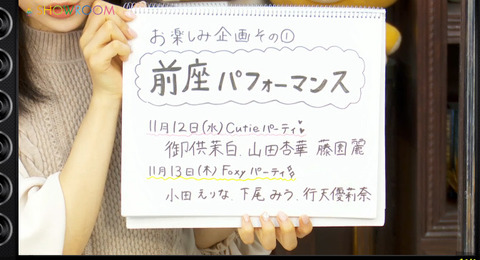 SHOWROOM
お楽しみ企画その①
前座パフォーマンス
11月12日(水)Cutieパーティ
御供茉白. 山田杏華 藤園麗
11月13日(木)Foxyパーティ
小田えりな. 下尾みう. 行天優莉奈